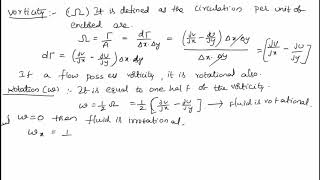 Vorticity :- (Ω) It is defined as the circulation per unit of
enclosed are.
Ω = Γ/A = dΓ/Δx·Δy = (∂v/∂x - ∂u/∂y) Δx·Δy / Δx·Δy = [∂v/∂x - ∂u/∂y]
dΓ = (∂v/∂x - ∂u/∂y) Δx·Δy
If a flow posses vorticity, it is rotational also.
Rotation (ω) :- It is equal to one half of the vorticity.
ω = 1/2 Ω = 1/2 [∂v/∂x - ∂u/∂y] → fluid is rotational.
if ω=0 then fluid is irrotational.
ωx = 1/